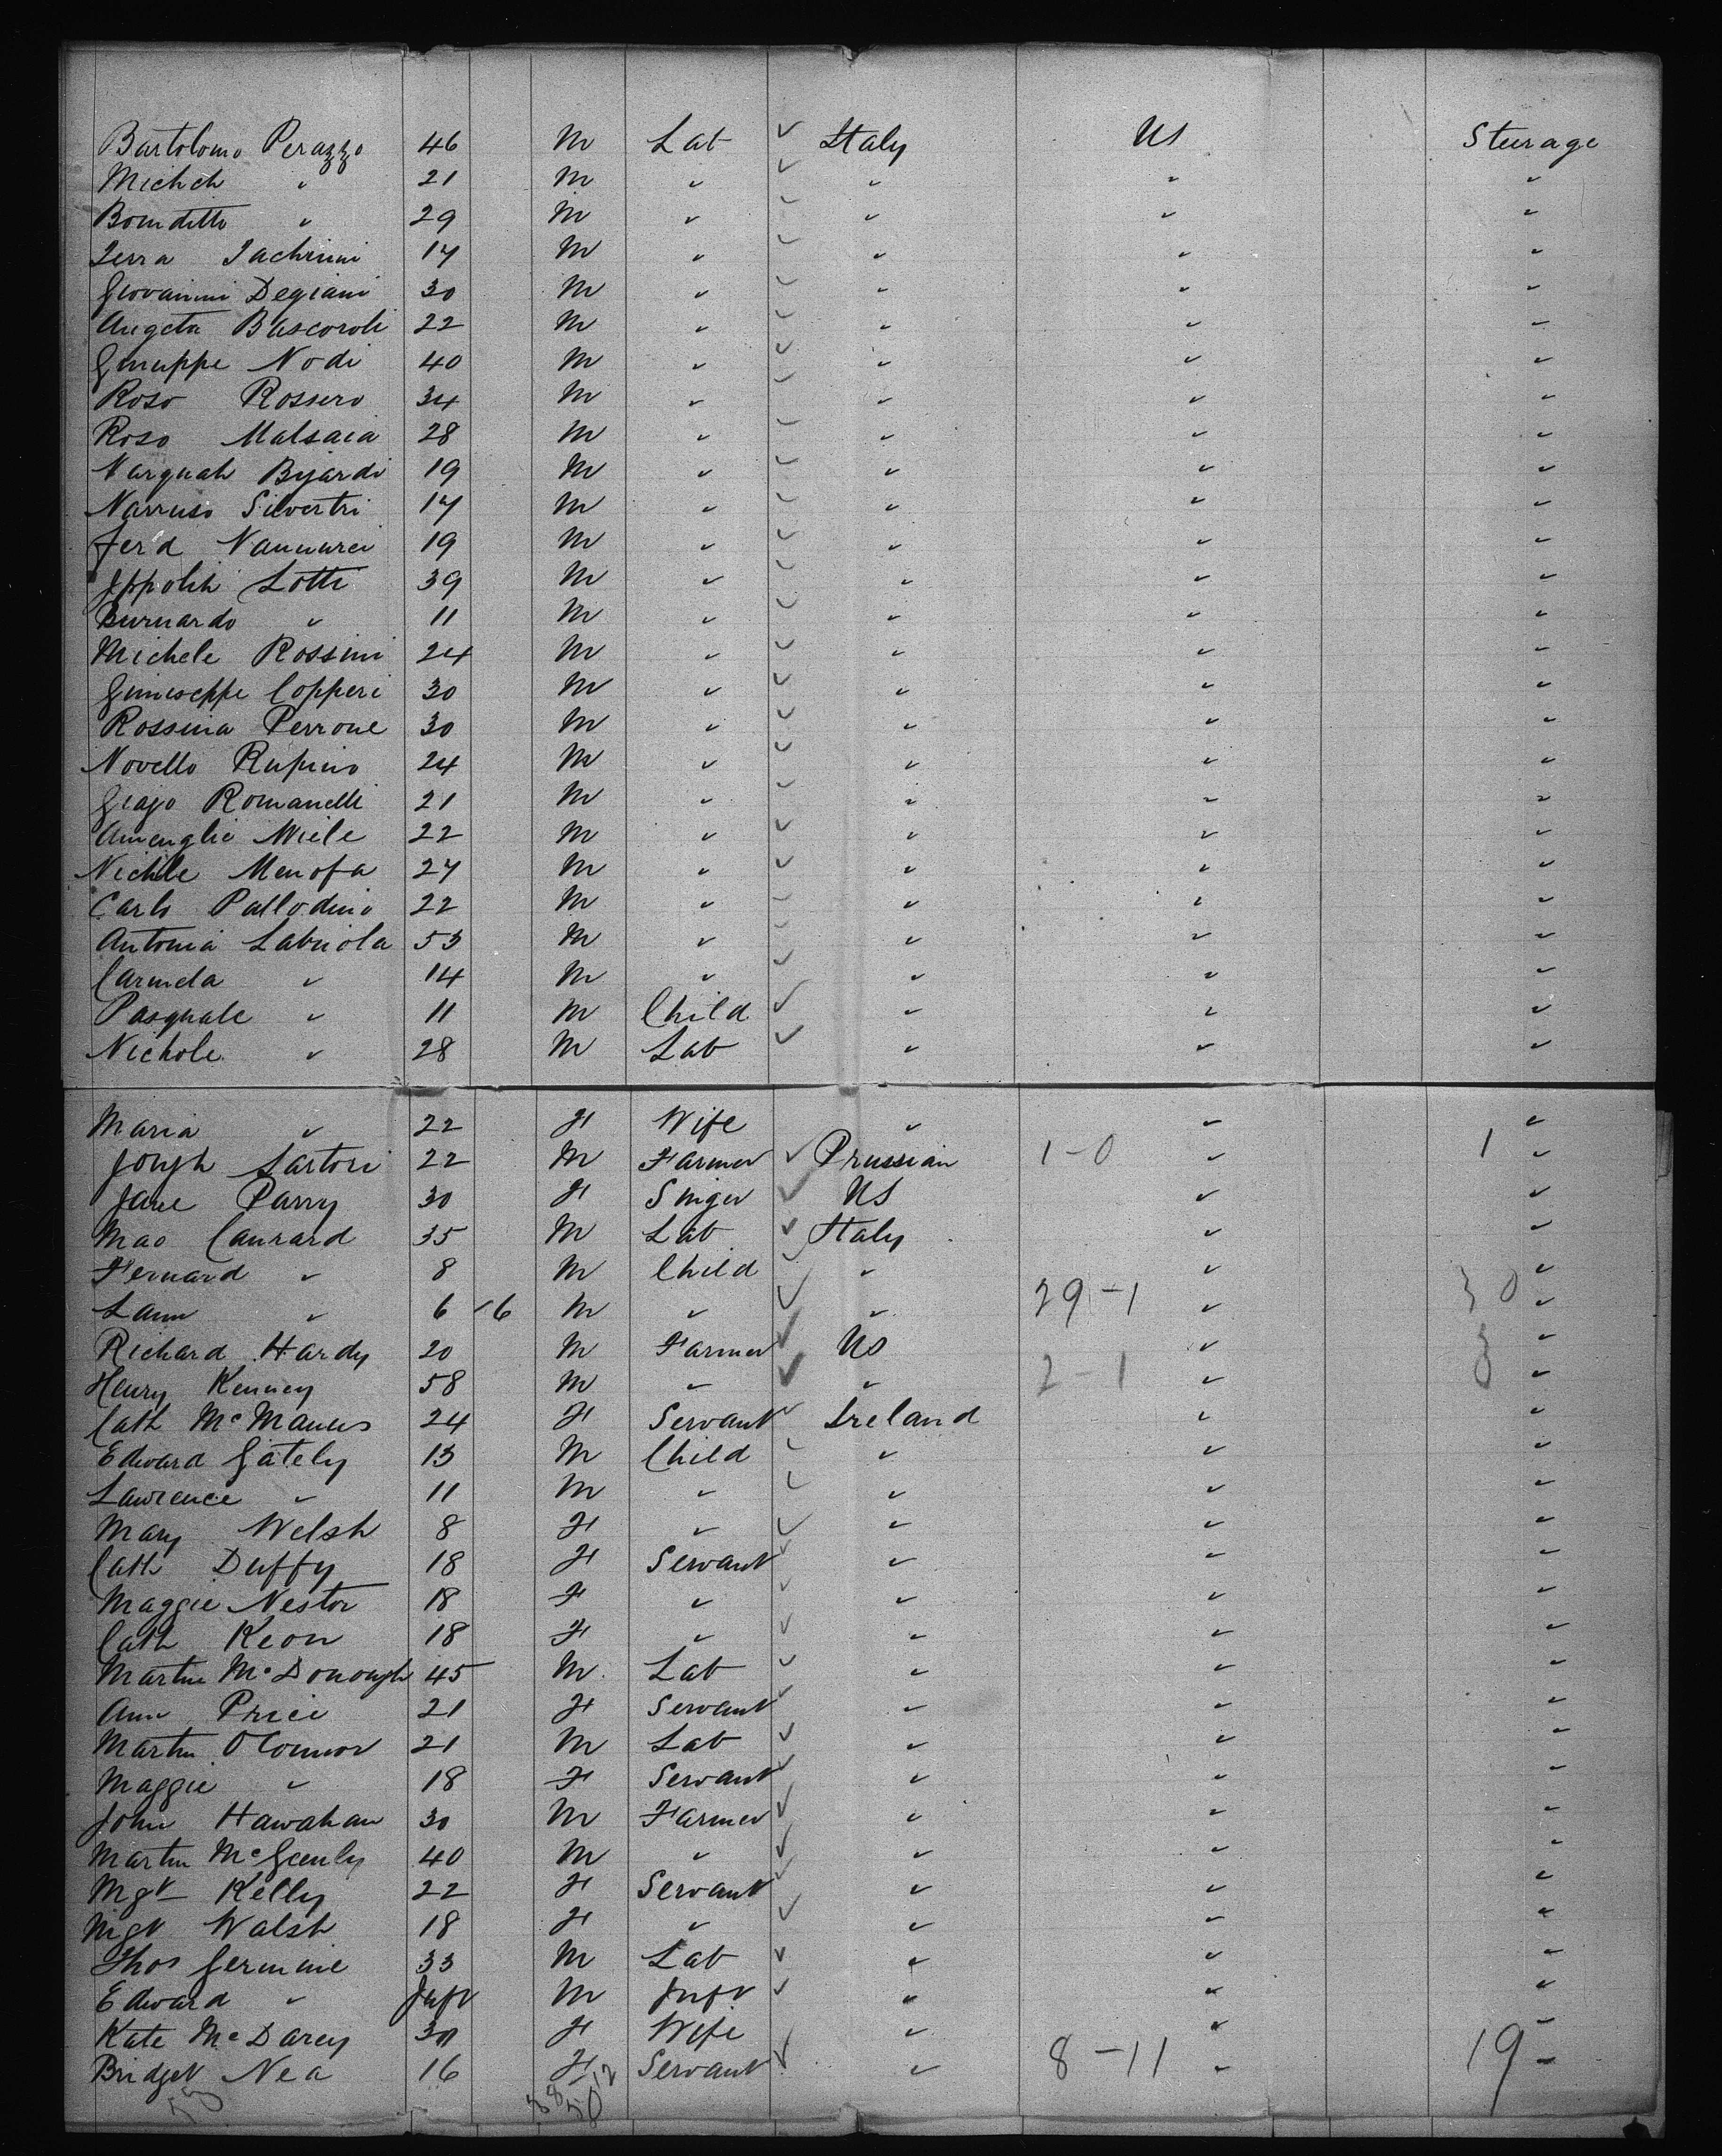 Bartolomo Perazzo 46 M Lab ✓ Italy US Steerage
Michch " 21 M " ✓ " " "
Bomditto " 29 M " ✓ " " "
Serra Iachrini 14 M " ✓ " " "
Giovanni Degiani 30 M " ✓ " " "
Angeta Bascoroli 22 M " ✓ " " "
Giuseppe Nodi 40 M " ✓ " " "
Roso Rossero 34 M " ✓ " " "
Roso Malsaia 28 M " ✓ " " "
Narquah Byardi 19 M " ✓ " " "
Narruso Silvertri 14 M " ✓ " " "
Ferd 19 M " ✓ " " "
Ippolih Lotti 39 M " ✓ " " "
Burnardo " 11 M " ✓ " " "
Michele Rossini 24 M " ✓ " " "
Giuiseppe Copperi 30 M " ✓ " " "
Rossina Perrone 30 M " ✓ " " "
Novello Rufino 24 M " ✓ " " "
Giajo Romanelli 21 M " ✓ " " "
Amenglio Miele 22 M " ✓ " " "
Nichle Menofa 24 M " ✓ " " "
Carlo Pallodino 22 M " ✓ " " "
Antonia Labriola 53 M " ✓ " " "
Carmela " 14 M " ✓ " " "
Pasquale " 11 M Child ✓ " " "
Nichole " 28 M Lab ✓ " " "
Maria " 22 F Wife " " "
Joseph Sartori 22 M Farmer ✓ Prussian 1-0 " 1 "
Jane Parry 30 F Singer ✓ US " "
Mao Canrard 35 M Lab ✓ Italy " "
Fernard " 8 M Child ✓ " " "
Laun " 6 16 M " ✓ " 29-1 " 30 "
Richard Hardy 20 M Farmer ✓ US " "
Henry Kenney 58 M " ✓ " 2-1 " 3 "
Cath McManus 24 F Servant ✓ Ireland " "
Edward Gately 13 M Child ✓ " " "
Lawrence " 11 M " ✓ " " "
Mary Welsh 8 F " ✓ " " "
Cath Duffy 18 F Servant ✓ " " "
Maggie Nestor 18 F " ✓ " " "
Cath Keon 18 F " ✓ " " "
Martin McDonough 45 M Lab ✓ " " "
Ann Price 21 F Servant ✓ " " "
Martin OConnor 21 M Lab ✓ " " "
Maggie " 18 F Servant ✓ " " "
John Hawahan 30 M Farmer ✓ " " "
Martin McGeenly 40 M " ✓ " " "
Mgt Kelly 22 F Servant ✓ " " "
Mgt Walsh 18 F " ✓ " " "
Thos Germine 33 M Lab ✓ " " "
Edward " Inft M Inft ✓ " " "
Kate McDarcy 30 F Wife " " "
Bridget Nea 16 F Servant ✓ " 8-11 " 19 "
38 12
50